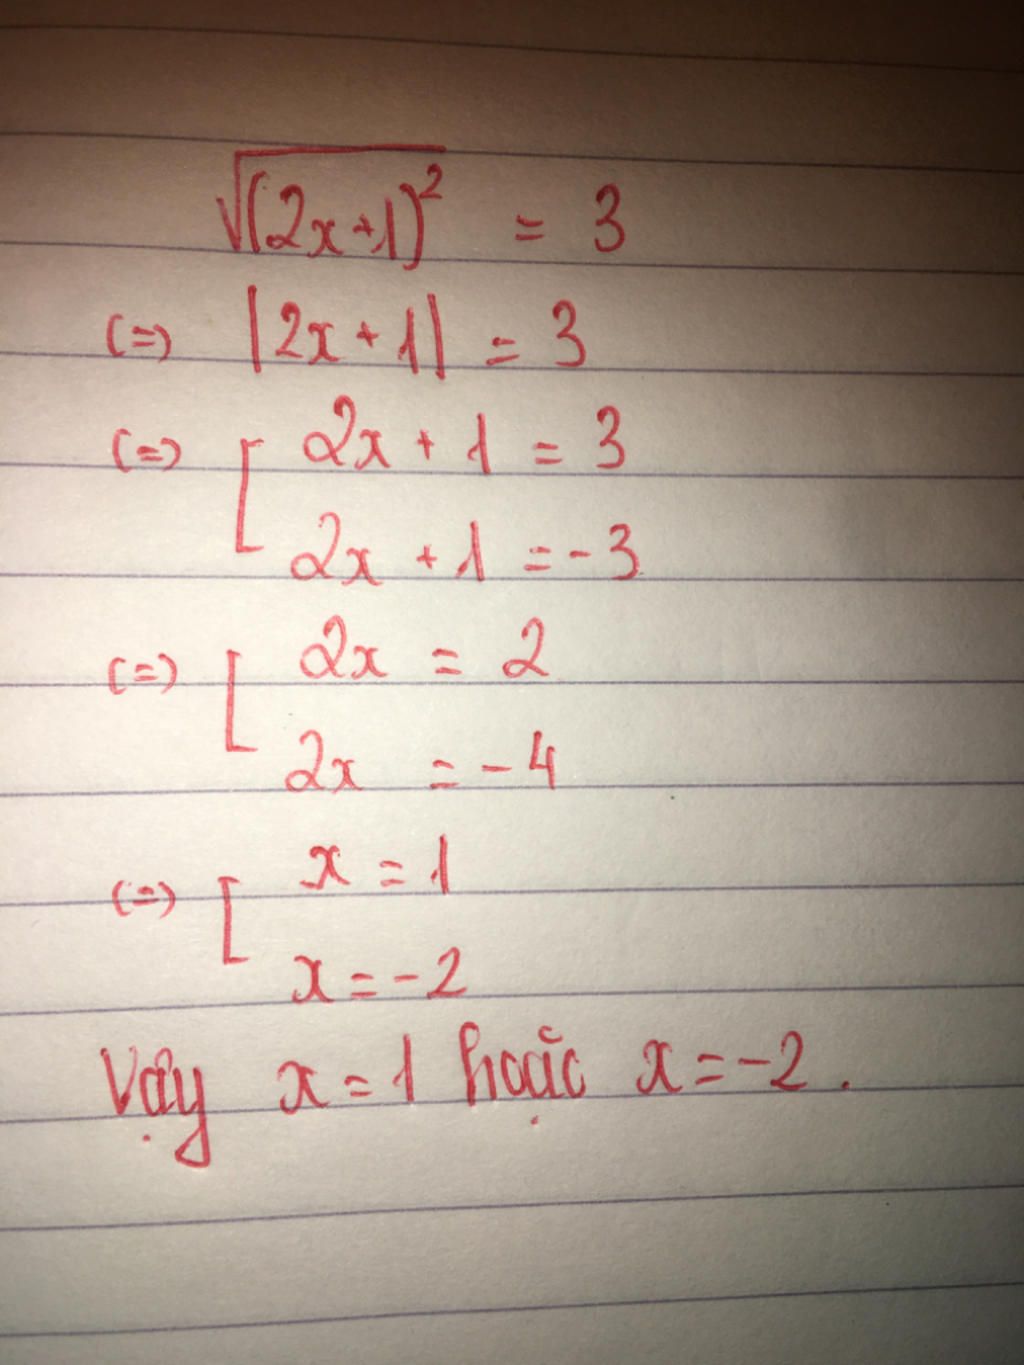 √(2x+1)² = 3
(=) |2x+1| = 3
(=) [ 2x + 1 = 3
2x + 1 = -3
(=) [ 2x = 2
2x = -4
(=) [ x = 1
x = -2
Vậy x = 1 hoặc x = -2.